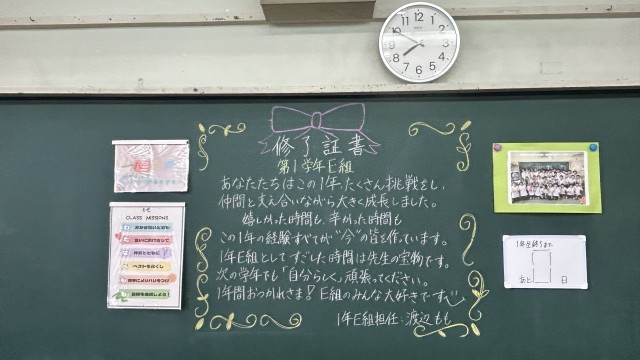 修了証書
第1学年E組
あなたたちはこの1年、たくさん挑戦をし、
仲間と支え合いながら大きく成長しました。
嬉しかった時間も、辛かった時間も
この1年の経験すべてが"今"の皆を作っています。
1年E組としてすごした時間は先生の宝物です。
次の学年でも「自分らしく」頑張ってください。
1年間おつかれさま! E組のみんな大好きです
1年E組担任 渡辺もも
CLASS MISSIONS
1年生終了まで
あと 0 日
12
1
2
3
4
5
6
7
8
9
10
11